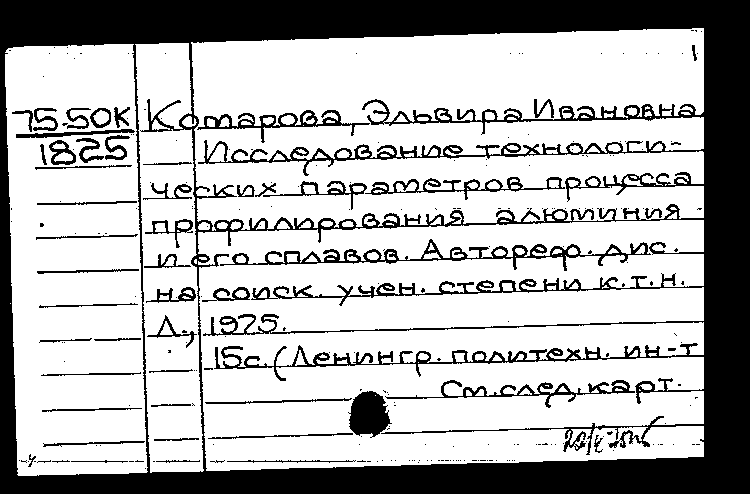 1
75.50К Котарова, Эльвира Ивановна
1825 Исследование технологи-
ческих параметров процесса
профилирования алюминия
и его сплавов. Автореф. дис.
на соиск. учен. степени к.т.н.
Л., 1975.
15с. (Ленингр. политехн. ин-т
См. след. карт.